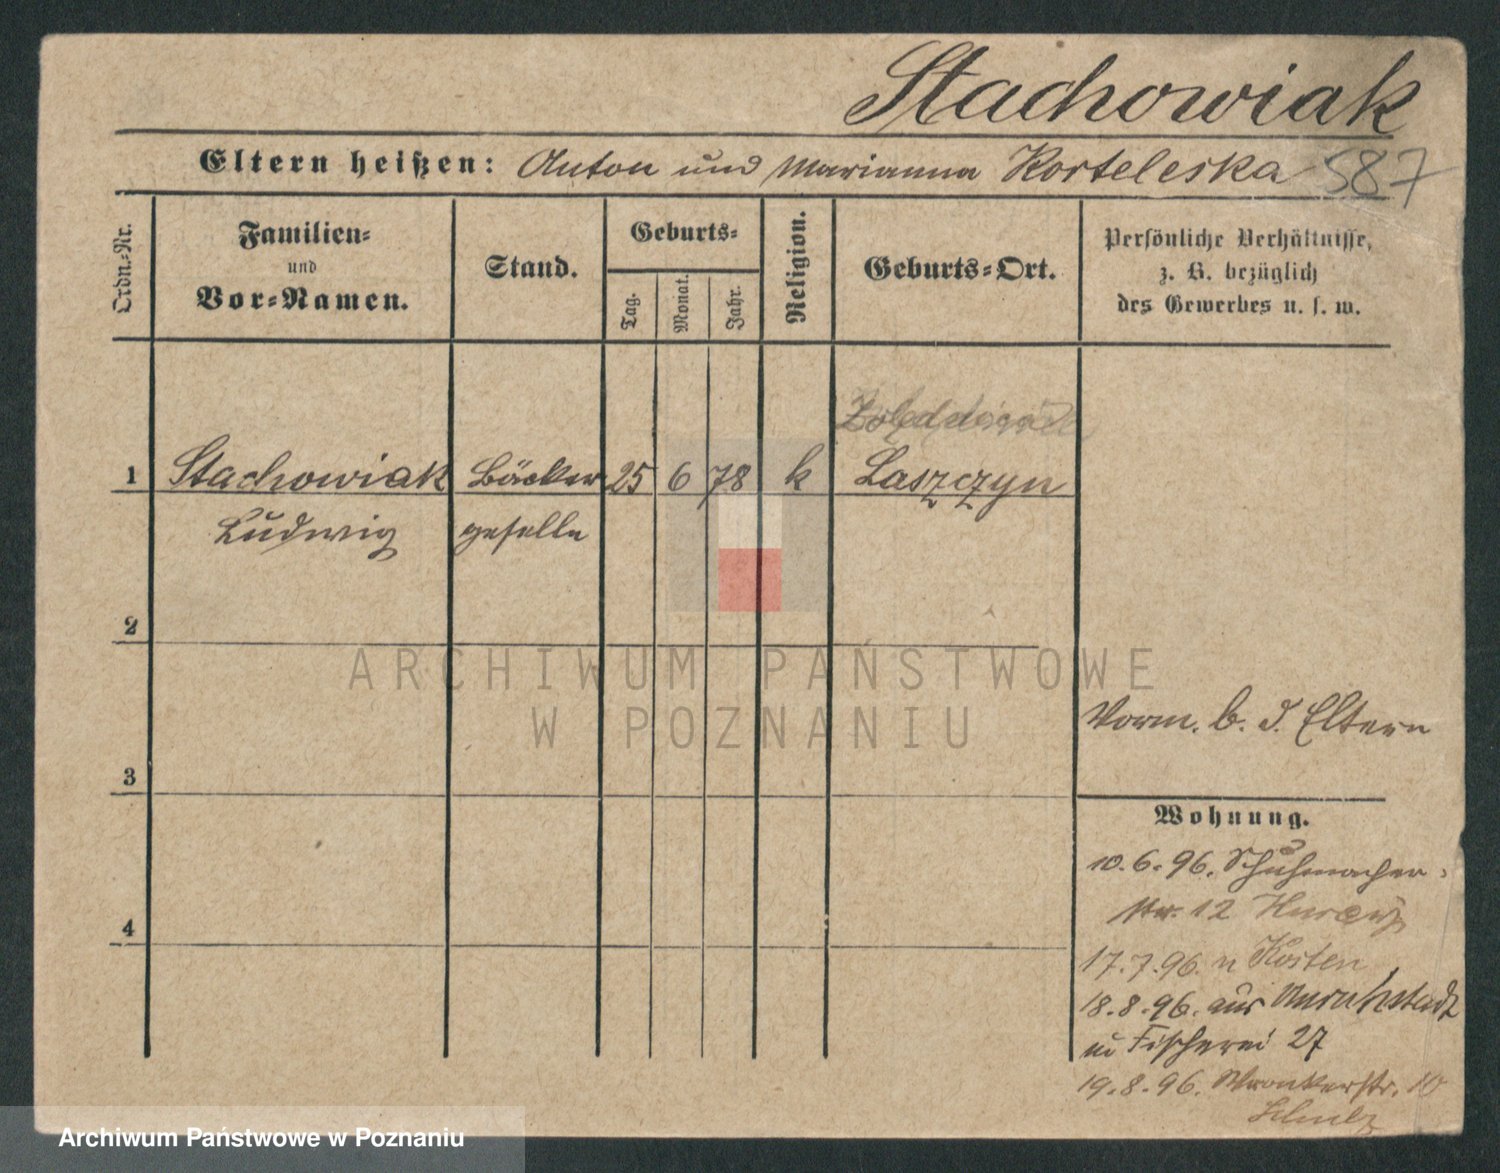 Stachowiak
Eltern heißen: Anton und Marianna Korteleska 587
Ordn.-Nr.
Familien-
und
Vor-Namen.
Stand.
Geburts-
Tag.
Monat.
Jahr.
Religion.
Geburts-Ort.
Persönliche Verhältnisse,
z. B. bezüglich
des Gewerbes u. s. w.
1 Stachowiak Bäcker 25 6 78 k Laszczyn
Ludwig geselle
2
ARCHIWUM PAŃSTWOWE
W POZNANIU
Vorm. b. d. Eltern
3
Wohnung.
10.6.96. Schuhmacher-
str. 12
4
17.7.96. n Kosten
18.8.96. aus Unruhstadt
n Fischerei 27
19.8.96. Wronkerstr. 10
Schulz
Archiwum Państwowe w Poznaniu